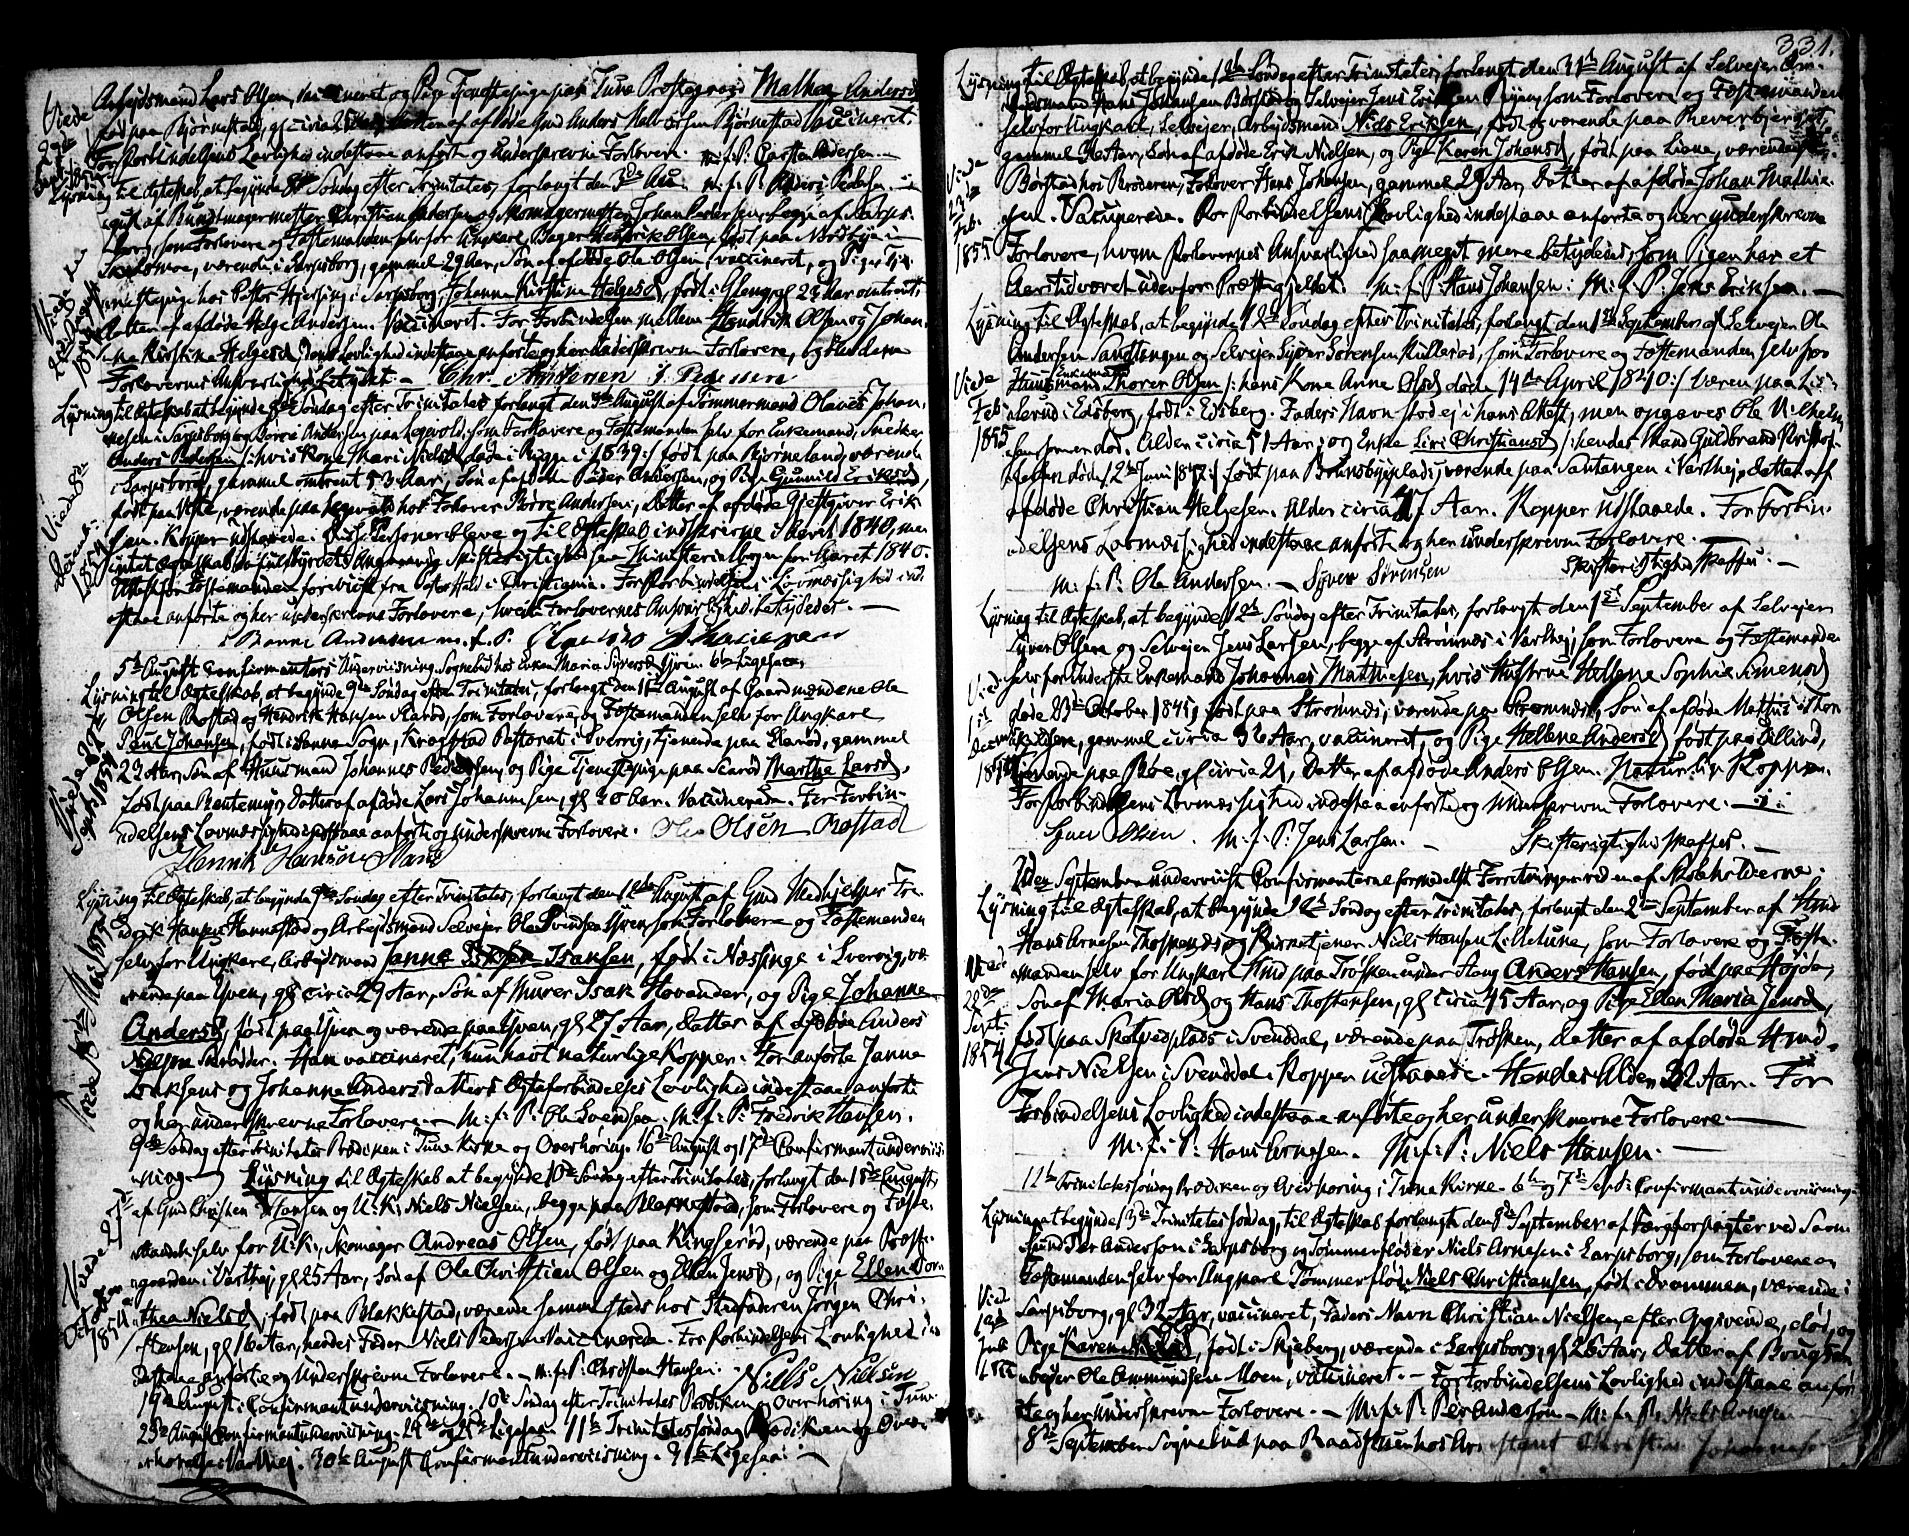 Arbejdsmand Lars Olsen, og Pige Tjenestepige paa Tune Præstegaard Mathea Andersd
født paa Bjørnestad, gl circa Datter af afdøde Gmd Anders Halvorsen Bjørnestad Vaccineret.
For Forbindelsens Lovlighed indestaae anførte og underskrevne Forlovere. m.f.P. Carsten Pedersen.
Lysning til Ægteskab, at begynde 8de Søndag efter Trinitatis, forlangt den 3die Au- m.f.P. Anders Pedersen.
gust af Bundtmagermester Christian Andersen og Skomagermester Johan Pedersen, begge af Sarps-
borg, som Forlovere og Fæstemanden selv for Ungkarl, Bager Hendrik Olsen, født paa Nordbye i
Skedsmoe, værende i Sarpsborg, gammel 29 Aar, Søn af afdøde Ole Olsen, vaccineret, og Pige Tje-
nestepige hos Pastor Hjersing i Sarpsborg, Johanne Kirstine Helgesd, født i Gleng, gl 23 Aar omtrent,
Datter af afdøde Helge Andersen. Vaccineret. For Forbindelsen mellem Hendrik Olsen og Johan-
ne Kirstine Helgesd dens Lovlighed indestaae anførte og her underskrevne Forlovere, og
Forlovernes Ansvarlighed betydet. Chr. Andersen J. Pedersen
Lysning til Ægteskab at begynde 8de Søndag efter Trinitatis forlangt den 5te August af Tømmermand Olaves Johan-
nesen i Sarpsborg og Børre Andersen paa Legvold, som Forlovere og Fæstemanden selv for Enkemand, Snedker
Anders Pedersen /: hvis Kone Kari Nielsd døde i Rygge i 1839 :/ født paa Bjørneland, værende
i Sarpsborg, gammel omtrent 53 Aar, Søn af afdøde Peder Andersen, og Pige Gunnild Eriksd,
født paa værende paa Legvold hos Forlover Børre Andersen, Datter af afdøde Gjestgiver Erik
sen. Kopper udstaaede. Disse Personer bleve og til Ægteskab indskrevne i Aaret 1840, men
intet Ægteskab da fuldbyrdet. Angaaende Skifterigtighed see Ministerialbogen for Aaret 1840.
Attest for Fæstemanden foreviist fra Pastor Hald i Christiania. For Forbindelsens Lovmæssighed ind-
estaae anførte og her underskrevne Forlovere, hvem Forlovernes Ansvarlighed betydedes.
Børre Andersen m.f.P. Olaves Johannesen
5te August Confirmanters Underviisning. Sognebud hos Enken Maria Syversd Yven. 6te Ligesaa.
Lysning til Ægteskab, at begynde 9de Søndag efter Trinitatis, forlangt den 11te August af Gaardmændene Ole
Olsen Rostad og Hendrik Hansen Skarød, som Forlovere og Fæstemanden selv for Ungkarl
Paul Johansen, født i Sanne Sogn, Krogstad Pastorat i Sverrig, tjenende paa Skarød, gammel
23 Aar, Søn af Huusmand Johannes Pedersen, og Pige Tjenestepige paa Skarød Marthe Larsd,
født paa Rentemyr, Datter af afdøde Lars Johannesen, gl 30 Aar. Vaccinerede. For Forbin-
delsens Lovmæssighed indestaae anførte og underskrevne Forlovere. Ole Olsen Rostad
Henrik Hansen Skarød
Lysning til Ægteskab, at begynde 9de Søndag efter Trinitatis, forlangt den 12te August af Gmd Medhjelper Fre-
derik Hansen Hannestad og Arbejdsmand Selvejer Ole Svendsen Yven som Forlovere og Fæstemanden
selv for Ungkarl, Arbejdsmand Janne Isaksen, født i Næsinge i Sverrig, væ-
rende paa Yven, gl circa 29 Aar, Søn af Murer Isak Hovander, og Pige Johanne
Andersd, født paa Yven og værende paa Yven, gl 27 Aar, Datter af afdøde Anders
Nielsen Skrædder. Han vaccineret, hun havt naturlige Kopper. For anførte Janne
Isaksens og Johanne Andersdatters Ægteforbindelses Lovlighed indestaae anførte
og her underskrevne Forlovere. m.f.P. Ole Svendsen. m.f.P. Fredrik Hansen.
9de Søndag efter Trinitatis Prædiken i Tune Kirke og Overhøring. 16de August og 17de Confirmantunderviis-
ning. Lysning til Ægteskab at begynde 10de Søndag efter Trinitatis, forlangt den 18de August,
af Gmd Christen Hansen og U.K. Niels Nielsen, begge paa Blakkestad, som Forlovere og Fæste-
manden selv for U.K., Skomager Andreas Olsen, født paa Kingserød, værende paa Præste-
gaarden i Varthej, gl 25 Aar, Søn af Ole Christian Olsen og Ellen Jensd, og Pige Ellen Dor-
thea Nielsd, født paa Blakkestad, værende sammesteds hos Stedfaderen Jørgen Chri-
stensen, gl 16 Aar, hendes Fader Niels Pedersen. Vaccinerede. For Forbindelsens Lovlighed in-
destaae anførte og underskrevne Forlovere. m.f.P. Christen Hansen. Niels Nielsen
19de August: Confirmantunderviisning. 10de Søndag efter Trinitatis Prædiken og Overhøring i Tune.
23de August Confirmantunderviisning. 24de og 25de Ligesaa. 11te Trinitatissøndag Prædiken og Over-
hørelse i Varthej. 30te August Confirmantunderviisning. 31te Ligesaa.
Viede
29de
Sept.
1854
Viede
1854
Viede
1854
Viede
Sept. 1854
Viede Mai 1855
Viede 27de
October
1854
331.
Lysning til Ægteskab, at begynde 12te Søndag efter Trinitatis, forlangt den 31te August af Selvejer
Hans Johansen Børstad og Selvejer Jens Eriksen Ryen, som Forlovere og Fæstemanden
selv for Ungkarl, Selvejer, Arbejdsmand Niels Eriksen, født og værende paa Reverbjerget,
gammel Aar, Søn af afdøde Erik Nielsen, og Pige Karen Johansd, født paa Liane, værende paa
Børstad hos Broderen, Forlover Hans Johansen, gammel 29 Aar, Datter af afdøde Johan Mathie-
sen. Vaccinerede. For Forbindelsens Lovlighed indestaae anførte og her underskrevne
Forlovere, hvem Forlovernes Ansvarlighed saameget mere betydedes, som Pigen har et
Aars Tid været udenfor Præstegjeldet. m.f.P. Hans Johansen. M.f.P. Jens Eriksen.
Lysning til Ægteskab, at begynde 12te Søndag efter Trinitatis, forlangt den 1ste September af Selvejer Ole
Andersen Sandtangen og Selvejer Syver Sørensen Kullerød, som Forlovere og Fæstemanden selv for
Huusmand Enkemand Thorer Olsen /: hans Kone Anne Olsd døde 14de April 1840 :/ væren paa Lis-
lerud i Edsberg, født i Edsberg. Faders Navn stod ej i hans Attest, men opgaves Ole Vilhelm-
sen, som er død. Alder circa 51 Aar, og Enke Siri Christiansd /: hendes Mand Guldbrand Kristof-
fersen døde 12te Juni 1847 :/ født paa Brunsbyplads, værende paa Santangen i Varthej, Datter af
afdøde Christian Helgesen. Alder circa 47 Aar. Kopper udstaaede. For Forbin-
delsens Lovmæssighed indestaae anførte og her underskrevne Forlovere.
m.f.P. Ole Andersen. Syver Sørensen Skifterigtighed skaffes.
Lysning til Ægteskab, at begynde 12te Søndag efter Trinitatis, forlangt den 1ste September af Selvejer
Syver Olsen og Selvejer Jens Larsen, begge af Strømnæs i Varthej, som Forlovere og Fæstemanden
selv for Inderste Enkemand Johannes Matthisen, hvis Hustrue Hellene Sophie Simensd
døde 23de October 1845, født paa Strømnæs, værende paa Strømnæs, Søn af afdøde Mathis Thor-
kildsen, gammel circa 36 Aar, vaccineret, og Pige Hellene Andersd, født paa Lillind,
tjenende paa Røe, gl circa 21, Datter af afdøde Anders Olsen. Naturlige Kopper.
For Forbindelsens Lovmæssighed indestaae anførte og underskrevne Forlovere.
Syver Olsen. m.f.P. Jens Larsen. Skifterigtighed skaffes.
2den September underviist Confirmanterne formedelst Forretninger ved en af Skoleholderne.
Lysning til Ægteskab, at begynde 12te Søndag efter Trinitatis, forlangt den 2den September af Gmd
Hans Arnesen Throsken og Kirketjener Niels Hansen Lilletune, som Forlovere og Fæste-
manden selv for Ungkarl Gmd paa Trøsken under Haug Anders Hansen, født paa Højda,
Søn af Maria Olsd og Hans Thostensen, gl circa 45 Aar, og Pige Ellen Maria Jensd,
født paa Skotvedplads i Svenddal, værende paa Trøsken, Datter af afdøde Hmd.
Jens Nielsen i Svenddal. Kopper udstaaede. Hendes Alder 32 Aar. For
Forbindelsens Lovlighed indestaae anførte og her underskrevne Forlovere.
m.f.P. Hans Arnesen. M.f.P. Niels Hansen.
12te Trinitatissøndag Prædiken og Overhøring i Tune Kirke. 6te og 7de Sept: Confirmantunderviisning.
Lysning at begynde 13de Trinitatissøndag, til Ægteskab forlangt den 8de September af Færgeforpagter ved Sand-
sund Per Anderson i Sarpsborg og Tømmerfløder Niels Arnesen i Sarpsborg, som Forlovere og
Fæstemanden selv for Ungkarl Tømmerfløder Niels Christiansen, født i Drammen, værende i
Sarpsborg, gl 32 Aar, vaccineret, Faders Navn Christian Nielsen efter Opgivende, død, og
Pige Karen Olsd, født i Skjeberg, værende i Sarpsborg, gl 26 Aar, Datter af Brugsar-
bejder Ole Ammundsen Moen, vaccineret. For Forbindelsens Lovlighed indestaae anfør-
te og her underskrevne Forlovere. M.f.P. Per Anderson. M.f.P. Niels Arnesen
8de September Sognebud paa Raadhuset hos Christin Johannes
Viede
23de
Feb.
1855
Viede
Feb.
1855
Viede
1ste
Decem
1854
Viede
28de
Sept.
1854
Viede
1855